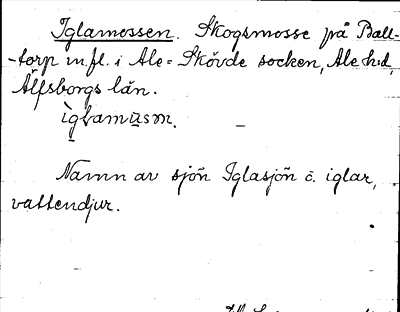 Iglamossen. Skogsmosse på Ball-
-torp m.fl. i Ale-Skövde socken, Ale hd,
Älfsborgs län.
ìglamùsm.
Namn av sjön Iglasjön c. iglar,
vattendjur.